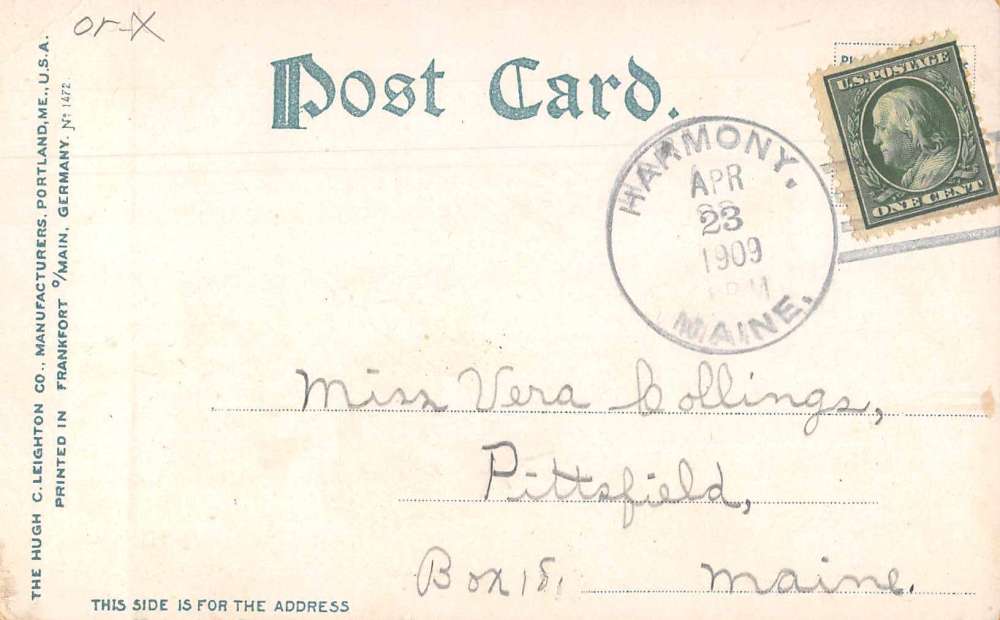 or-X
Post Card.
U.S. POSTAGE
ONE CENT
HARMONY,
APR
23
1909
MAINE.
Miss Vera Collings,
Pittsfield,
Box 18, Maine.
THIS SIDE IS FOR THE ADDRESS
THE HUGH C. LEIGHTON CO., MANUFACTURERS, PORTLAND, ME., U.S.A.
PRINTED IN FRANKFORT o/MAIN, GERMANY. No 1472